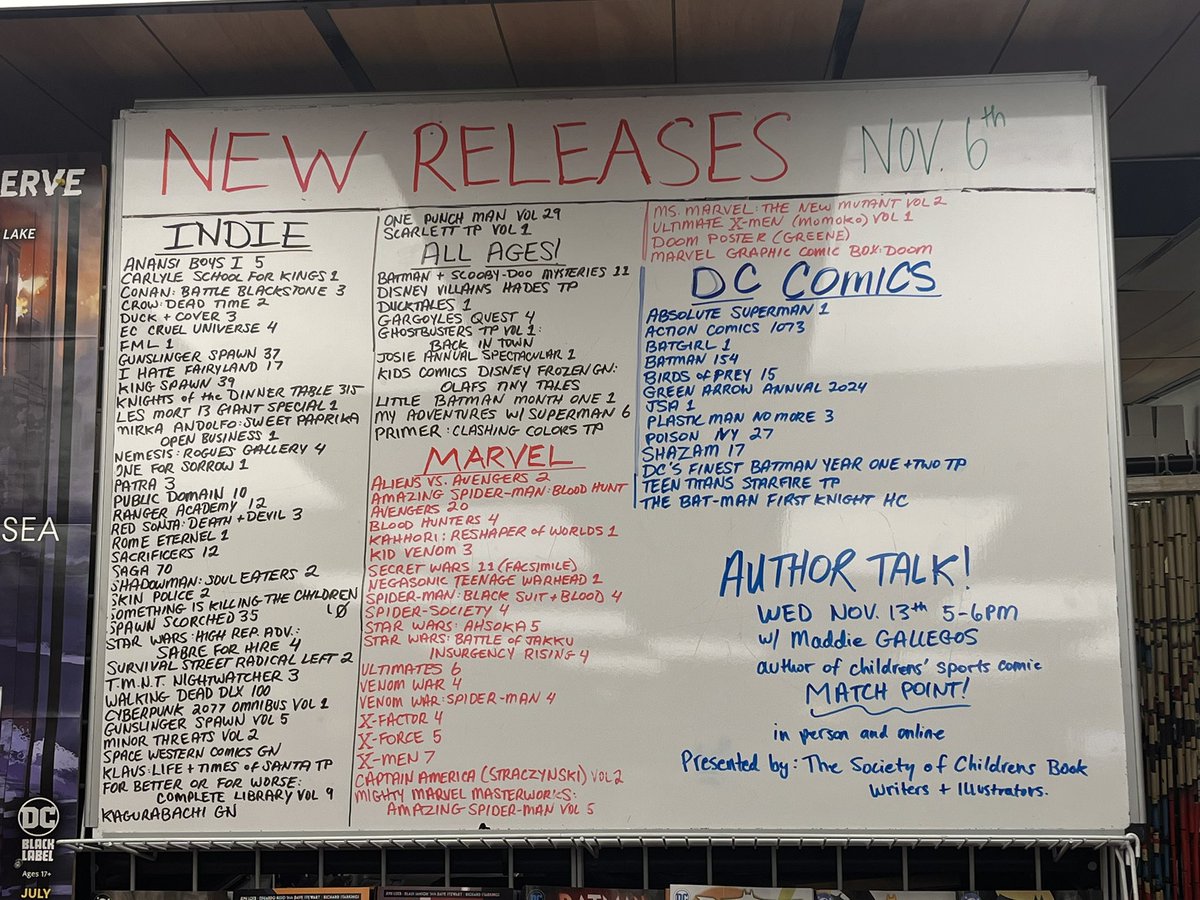 NEW RELEASES NOV. 6th
INDIE
ANANSI BOYS I 5
CARLYLE SCHOOL FOR KINGS 1
CONAN: BATTLE BLACKSTONE 3
CROW: DEAD TIME 2
DUCK + COVER 3
EC CRUEL UNIVERSE 4
FML 1
GUNSLINGER SPAWN 37
I HATE FAIRYLAND 17
KING SPAWN 39
KNIGHTS of the DINNER TABLE 315
LES MORT 13 GIANT SPECIAL 1
MIRKA ANDOLFO: SWEET PAPRIKA
OPEN BUSINESS 1
NEMESIS: ROGUES GALLERY 4
ONE FOR SORROW 1
PATRA 3
PUBLIC DOMAIN 10
RANGER ACADEMY 12
RED SONJA: DEATH + DEVIL 3
ROME ETERNEL 1
SACRIFICERS 12
SAGA 70
SHADOWMAN: SOUL EATERS 2
SKIN POLICE 2
SOMETHING IS KILLING THE CHILDREN
10
SPAWN SCORCHED 35
STAR WARS: HIGH REP. ADV.:
SABRE FOR HIRE 4
SURVIVAL STREET RADICAL LEFT 2
T.M.N.T. NIGHTWATCHER 3
WALKING DEAD DLX 100
CYBERPUNK 2077 OMNIBUS VOL 1
GUNSLINGER SPAWN VOL 5
MINOR THREATS VOL 2
SPACE WESTERN COMICS GN
KLAUS: LIFE + TIMES of SANTA TP
FOR BETTER OR FOR WORSE:
COMPLETE LIBRARY VOL 9
KAGURABACHI GN
ONE PUNCH MAN VOL 29
SCARLETT TP VOL 1
ALL AGES!
BATMAN + SCOOBY-DOO MYSTERIES 11
DISNEY VILLAINS HADES TP
DUCKTALES 1
GARGOYLES QUEST 4
GHOSTBUSTERS TP VOL 1:
BACK IN TOWN
JOSIE ANNUAL SPECTACULAR 1
KIDS COMICS DISNEY FROZEN GN:
OLAFS TINY TALES
LITTLE BATMAN MONTH ONE 1
MY ADVENTURES W/ SUPERMAN 6
PRIMER: CLASHING COLORS TP
MARVEL
ALIENS VS. AVENGERS 2
AMAZING SPIDER-MAN: BLOOD HUNT
AVENGERS 20
BLOOD HUNTERS 4
KAHHORI: RESHAPER of WORLDS 1
KID VENOM 3
SECRET WARS 11 (FACSIMILE)
NEGASONIC TEENAGE WARHEAD 1
SPIDER-MAN: BLACK SUIT + BLOOD 4
SPIDER-SOCIETY 4
STAR WARS: AHSOKA 5
STAR WARS: BATTLE OF JAKKU
INSURGENCY RISING 4
ULTIMATES 6
VENOM WAR 4
VENOM WAR: SPIDER-MAN 4
X-FACTOR 4
X-FORCE 5
X-MEN 7
CAPTAIN AMERICA (STRACZYNSKI) VOL 2
MIGHTY MARVEL MASTERWORKS:
AMAZING SPIDER-MAN VOL 5
MS. MARVEL: THE NEW MUTANT VOL 2
ULTIMATE X-MEN (MOMOKO) VOL 1
DOOM POSTER (GREENE)
MARVEL GRAPHIC COMIC BOX: DOOM
DC COMICS
ABSOLUTE SUPERMAN 1
ACTION COMICS 1073
BATGIRL 1
BATMAN 154
BIRDS OF PREY 15
GREEN ARROW ANNUAL 2024
JSA 1
PLASTIC MAN NO MORE 3
POISON IVY 27
SHAZAM 17
DC'S FINEST BATMAN YEAR ONE + TWO TP
TEEN TITANS STARFIRE TP
THE BAT-MAN FIRST KNIGHT HC
AUTHOR TALK!
WED NOV. 13th 5-6PM
w/ Maddie GALLEGOS
author of childrens' sports comic
MATCH POINT!
in person and online
Presented by: The Society of Childrens Book
Writers + Illustrators.
ERVE
LAKE
SEA
DC
BLACK
LABEL
Ages 17+
JULY